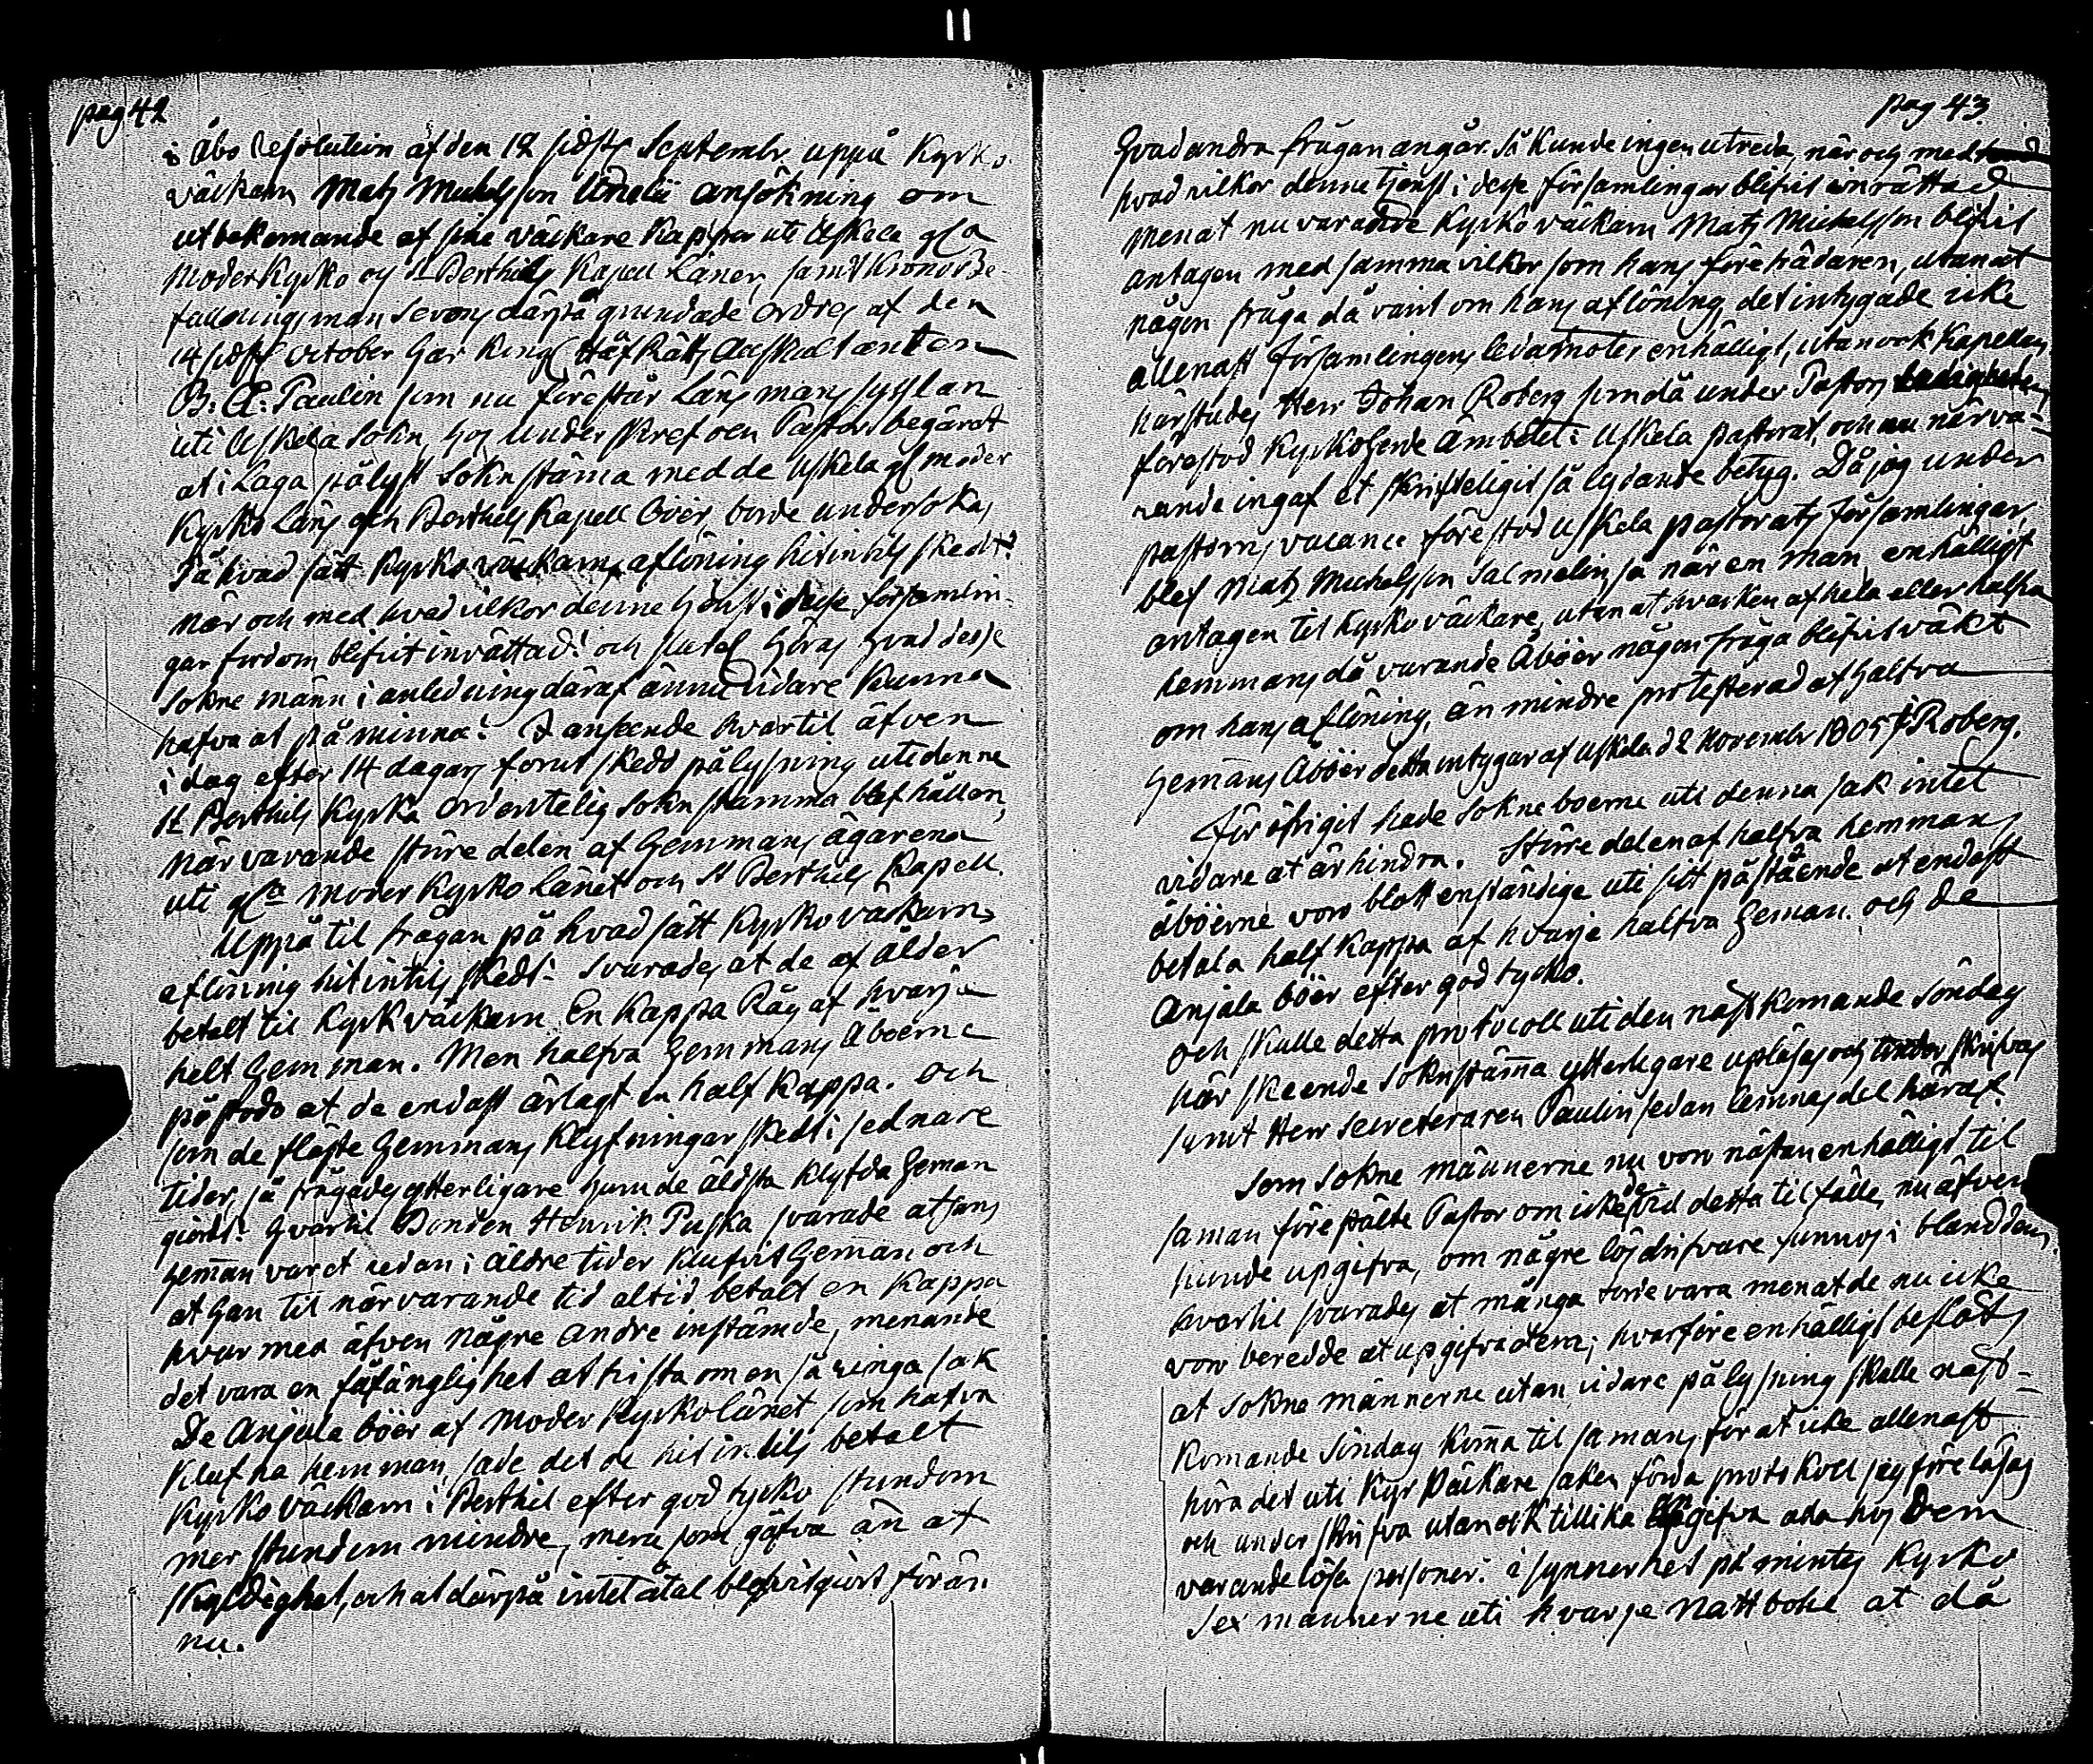 pag 42
i Åbo Resolution af den 12 sidstl Septembr. uppå Kyrko
väckarn Matz Michelsson ansökning om
utbekomande af sine väckare Kappor uti Uskela gla
Moder Kyrko och St Berthils Kapell Länen, samt Krono Be-
fallningsman Servons därpå grundade Ordres af den
14 sidstl October har Kongl HåfRätts Auscultanten
B. E. Paulin som nu förestår Länsmans sysslan
uti Uskela Sokn, hos underskrefven Pastor begärdt
at i Laga pålyst Soknstäma med de Uskela gl moder
Kyrko Läns och Berthils Kapell Böer, borde undersökas
På hvad sätt Kyrko väckarns aflöning hitintils skedt?
När och med hvad vilkor denne tjenst i desse församlin-
gar fordom blifvit inrättad? och slutel höras hvad desse
Sokne männ i anledning däraf ännu vidare kunna
hafva at påminna? I anseende hvartil äfven
i dag efter 14 dagars forut skedd pålysning uti denne
St Berthils Kyrka ordentelig Soknstämma blef hållen,
Närvarande störe delen af Hemmans ägarena
uti gla Moder Kyrko Länet och St Berthils Kapell.
Uppå til frågan på hvad sätt Kyrko väckarns
aflöning hitintils skedt? Svarades at de af ålder
betalt til Kyrkväckarn En Kappa Råg af hvarje
helt Hemman. Men halfva Hemmans Åboerne
påstodo at de endast ärlagt en half Kappa. Och
som de fläste Hemmans Klyfningar skedt i sednare
tider, så frågades ytterligare huru de äldsta klyfda Heman
giordt? Hvartil Bonden Henrik Puska svarade at hans
Heman varet redan i äldre tider klufvit Heman och
at han til närvarande tid altid betalt en Kappa
hvar med äfven några andre instämde, menande
det vara en fåfänglighet at tvista om en så ringa sak
De Anjala böer af Moder Kyrkolänet som hafva
klufna hemman, sade det de hitintils betalt
Kyrko väckarn i Berthil efter god tycko stundom
mer stundom mindre, mera som gåfva än at
skyldighet, och at därpå intet åtal blifvit giort förän
nu.
pag 43
Hvad andra frågan angår. Så kunde ingen utreda, när och med
hvad vilkor denne tjenst i desse församlingar blifvit inrättad
Men at nu varande Kyrko väckarn Matz Michelsson blifvit
antagen med samma vilkor som hans företrädaren, utan at
någon fråga då varit om hans aflöning, det intygade icke
allenast församlingens ledamöter enhälligt, utan ock Kapellan
härstädes Herr Johan Roberg som då under Pastors
förestod Kyrkoherde Ämbetet i Uskela pastorat, och nu närva-
rande ingaf et skrifteligit så lydande betyg. Då jag under
pastoris vacance förestod Uskela pastorats församlingar,
blef Matz Michelsson Salmelin så när en man, enhälligt
antagen til Kyrko väckare, utan at hvarken af hela eller halfva
hemmans då varande Åböer någon fråga blifvit väkt
om hans aflöning, än mindre protesterad af halfva
Hemans Åböer detta intygar af Uskela d 2 Novembr 1805 J Roberg.
För öfrigit hade Sokneboerne uti denna sak intet
vidare at ärhindra. Störe delen af halfva hemmans
åböerne voro blott enständige uti sitt påstående at endast
betala half Kappa af hvarje halfva Heman. och de
Anjala böer efter god tycko.
Och skulle detta protocoll uti den näst komande Söndag
här skeende Soknstäma ytterligare upläsas och underskrifvas
samt Herr Secreteraren Paulin sedan lemnas del häraf.
Som Sokne männerne nu voro nästan enhälligt til
saman förestälte Pastor om icke de vid detta tilfälle, nu äfven
kunde upgifva, om någre lösdrifvare funnos i bland dem,
hvartil svarades at många torde vara men at de nu icke
voro beredde at upgifva dem; hvarföre enhälligt beslöts
at Sokne männerne utan vidare pålysning skulle näst-
komande Söndag koma til samans för at icke allenast
höra det uti Kyr Väckare saken förda protokoll sig föreläsas
och underskrifva utan ock tillika upgifva alla hos dem
varande lösa personer. i synnerhet påmintes Kyrko
Sex mannerne uti hvarje Nattbohl at då